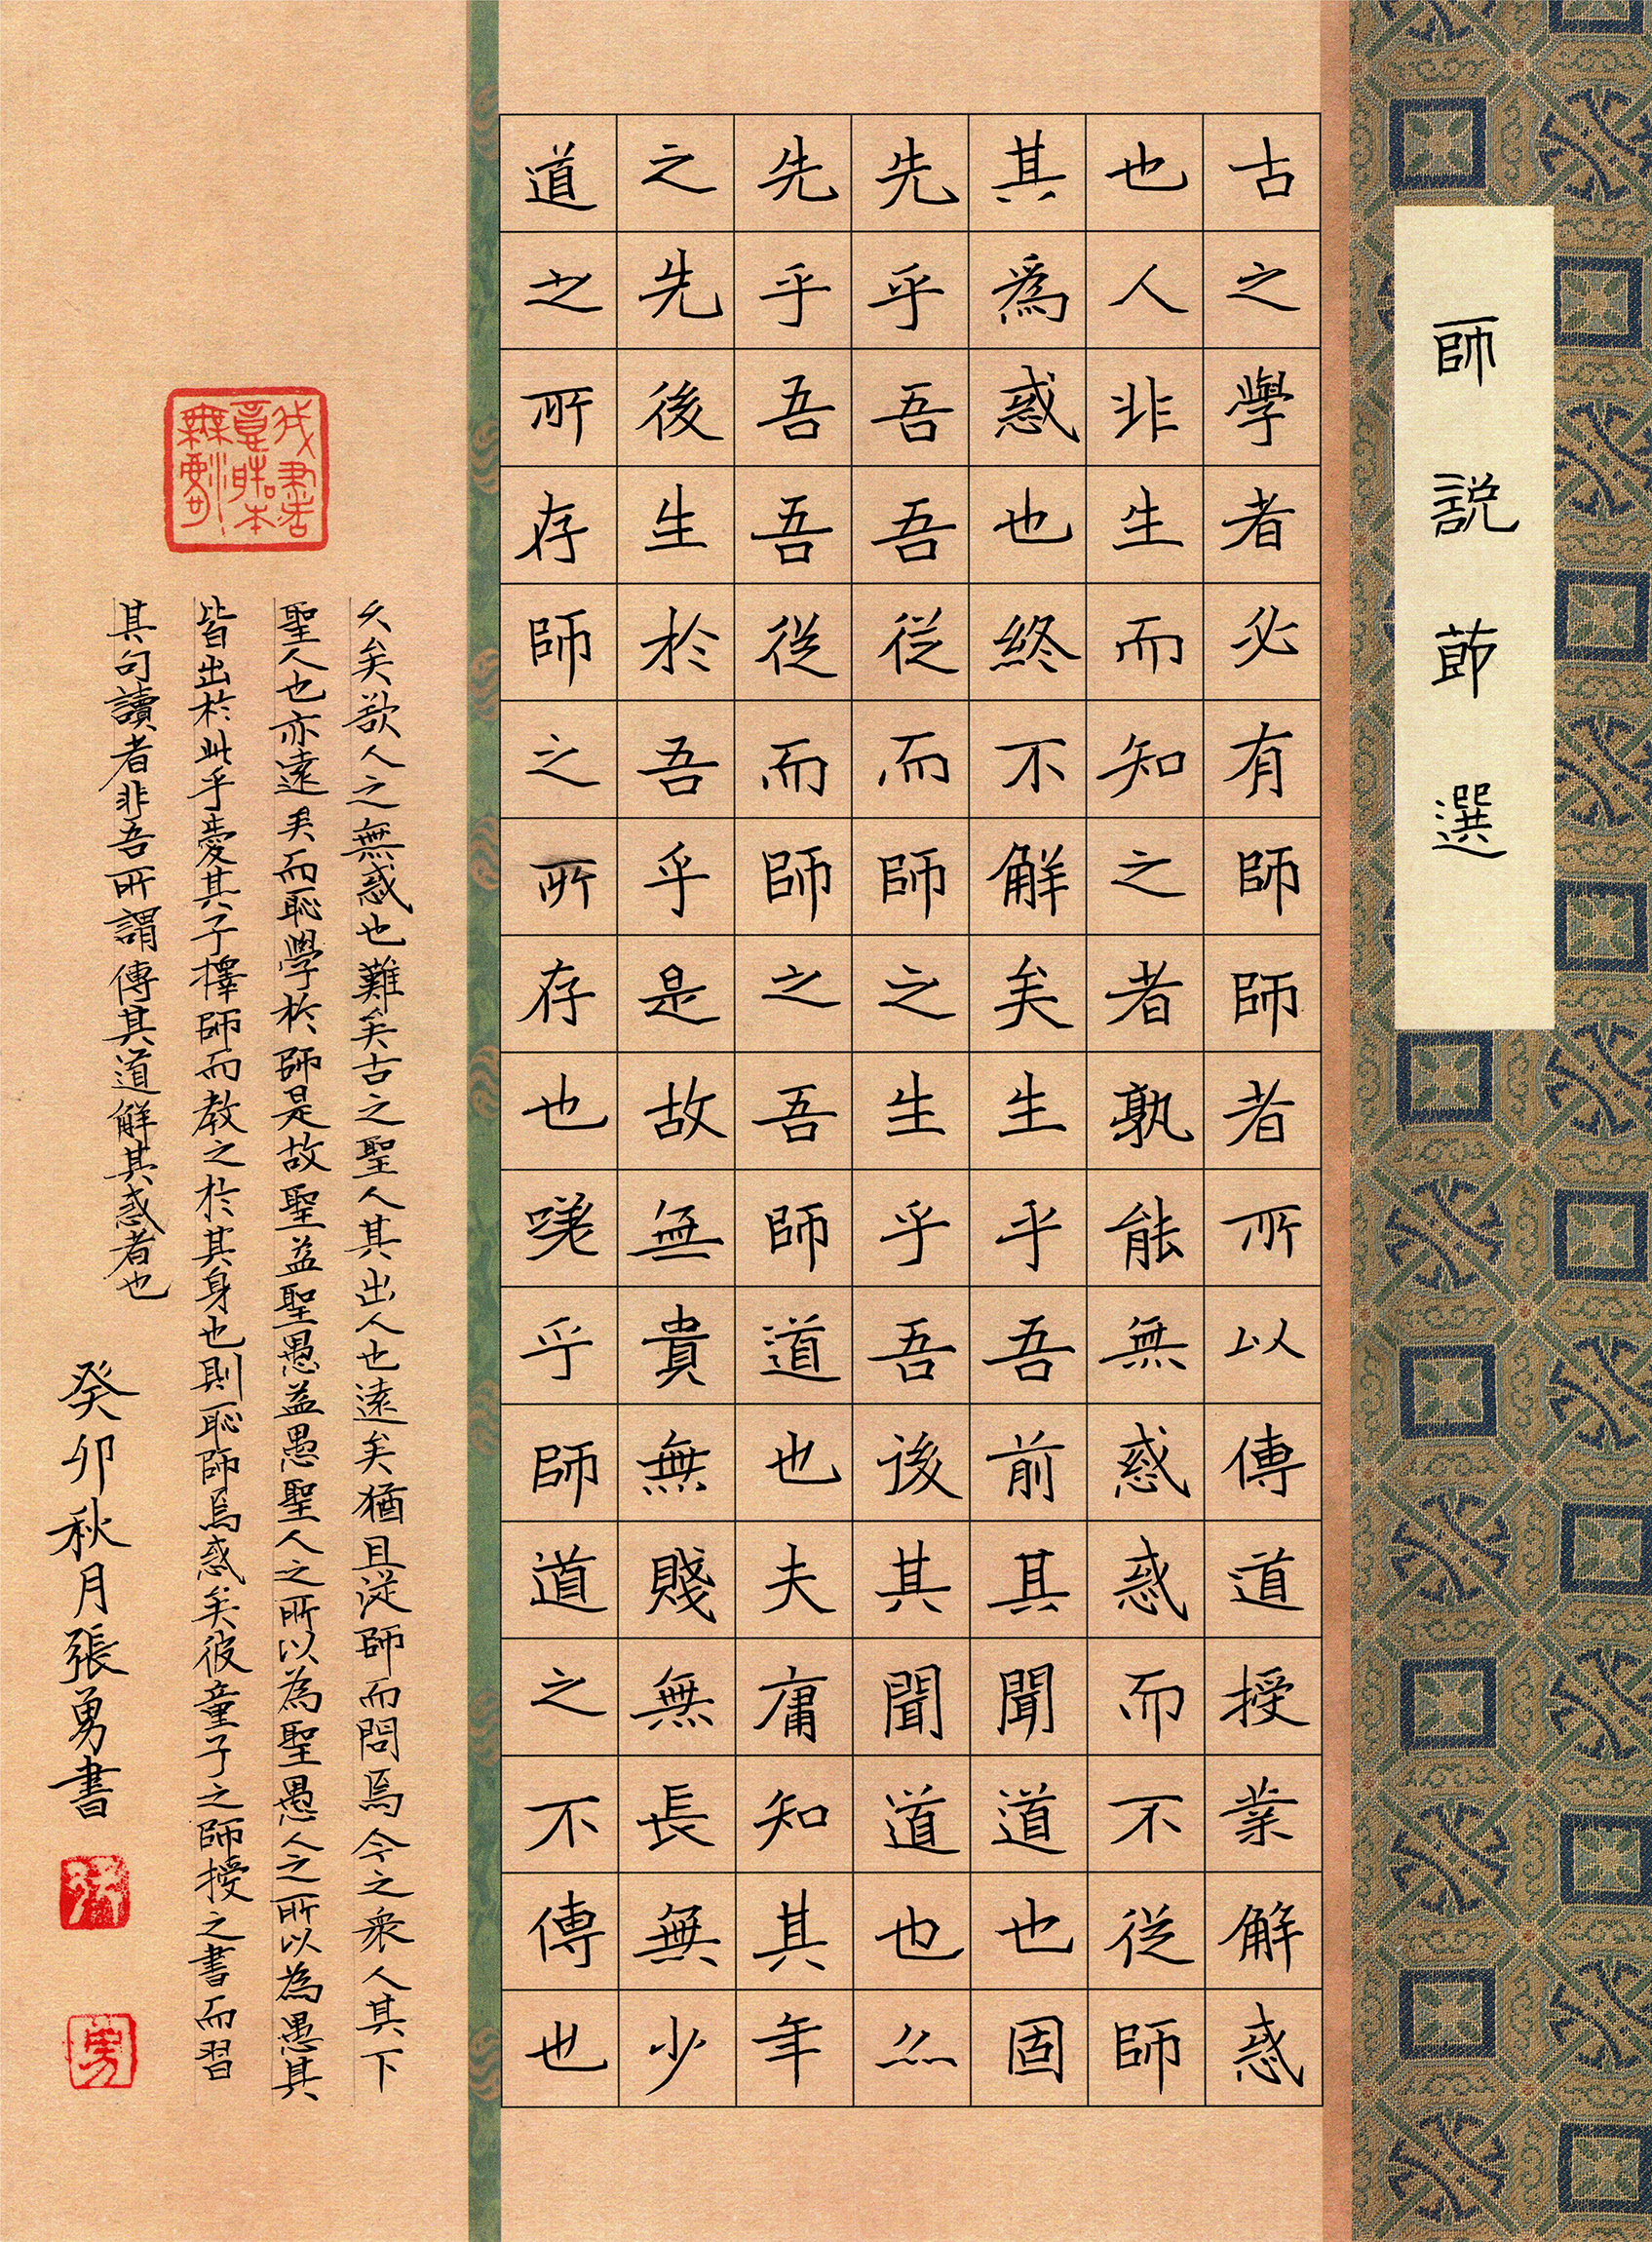 師説莭選
古之學者必有師師者所以傳道授業解惑
也人非生而知之者孰能無惑惑而不從師
其爲惑也終不解矣生乎吾前其聞道也固
先乎吾吾從而師之生乎吾後其聞道也亦
先乎吾吾從而師之吾師道也夫庸知其年
之先後生於吾乎是故無貴無賤無長無少
道之所存師之所存也嗟乎師道之不傳也
久矣欲人之無惑也難矣古之聖人其出人也遠矣猶且從師而問焉今之衆人其下
聖人也亦遠矣而恥學於師是故聖益聖愚益愚聖人之所以為聖愚人之所以為愚其
皆出於此乎愛其子擇師而教之於其身也則恥師焉惑矣彼童子之師授之書而習
其句讀者非吾所謂傳其道解其惑者也
癸卯秋月張勇書
勇